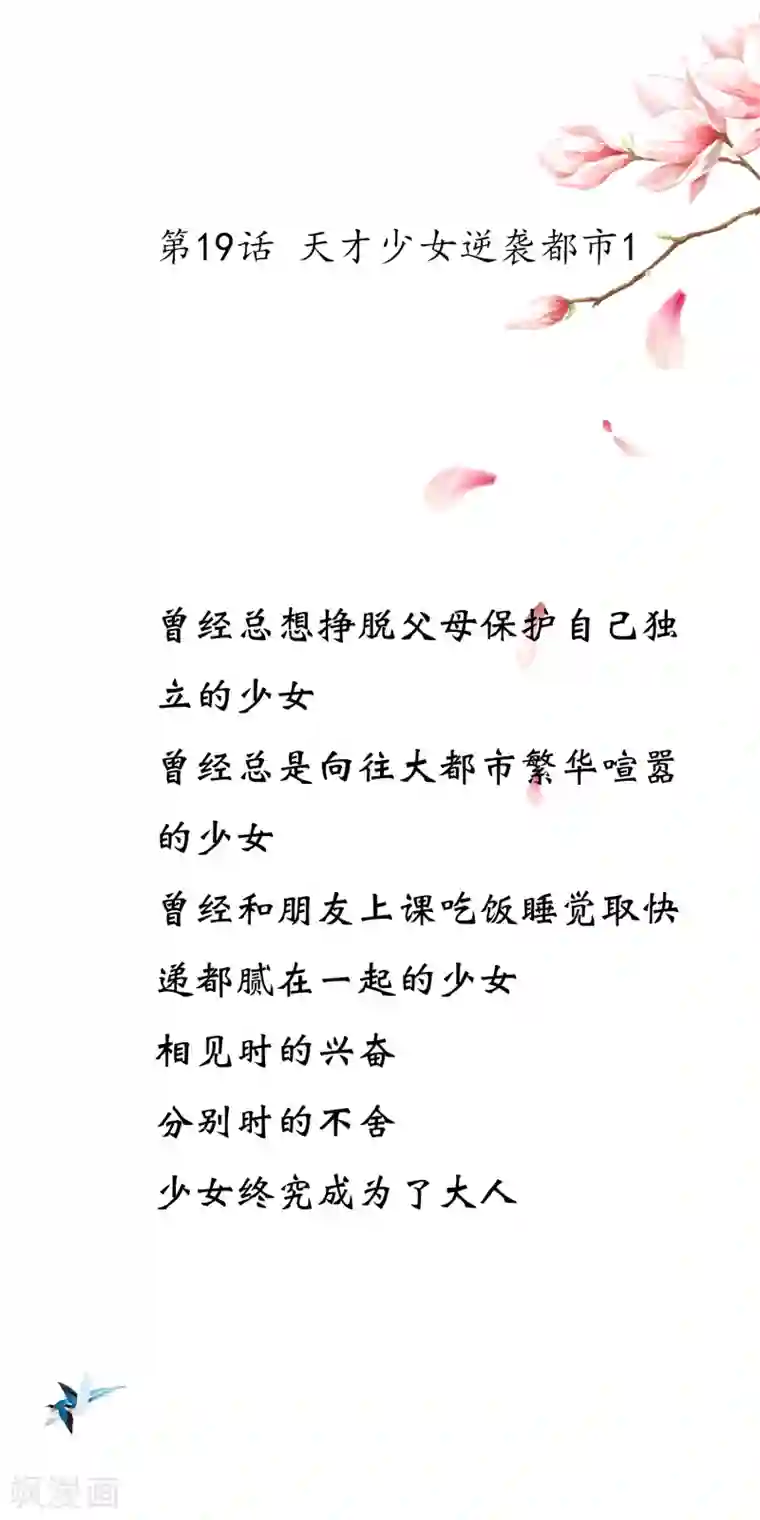 第19话 天才少女逆袭都市1
曾经总想挣脱父母保护自己独
立的少女
曾经总是向往大都市繁华喧嚣
的少女
曾经和朋友上课吃饭睡觉取快
递都腻在一起的少女
相见时的兴奋
分别时的不舍
少女终究成为了大人
飒漫画